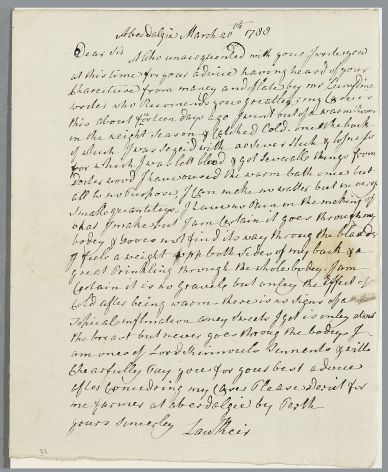 Aberdalgie March 20th 1788
Dear Sir Altho unacquented with you I wrote you
at this time for your advice having heard of your
from maney and of late by mr
who Recomends you greatly my Case is
this about fourteen days ago I went out of a warm room
in the night season & Catched Cold. on the back
of which I was seged with a severe & losness
for which I was latt blood & got severalle things from
Docter wood I have oused the warm bath once but
all to no purpose I Can make no watter but in very
small quantatys I have no pain in the making of
what I make but I am Certain it goes through my
bodey & doues not find its way through the bladder
I feele a weight upon both sides of my back & a
great Prinkling through the whole bodey I am
Certain it is no gravele but onley the Effect of
Cold after being warm there is no signs of a
aney sweats I get is onley about
the breast but never goes throug the bodey I
am one of Lord Kinnouls Tennents & will
Chearfulley Pay you for your best advice
after Considring my Case Please derict for
me farmer at aberdalgie by Perth
yours sincerley
31